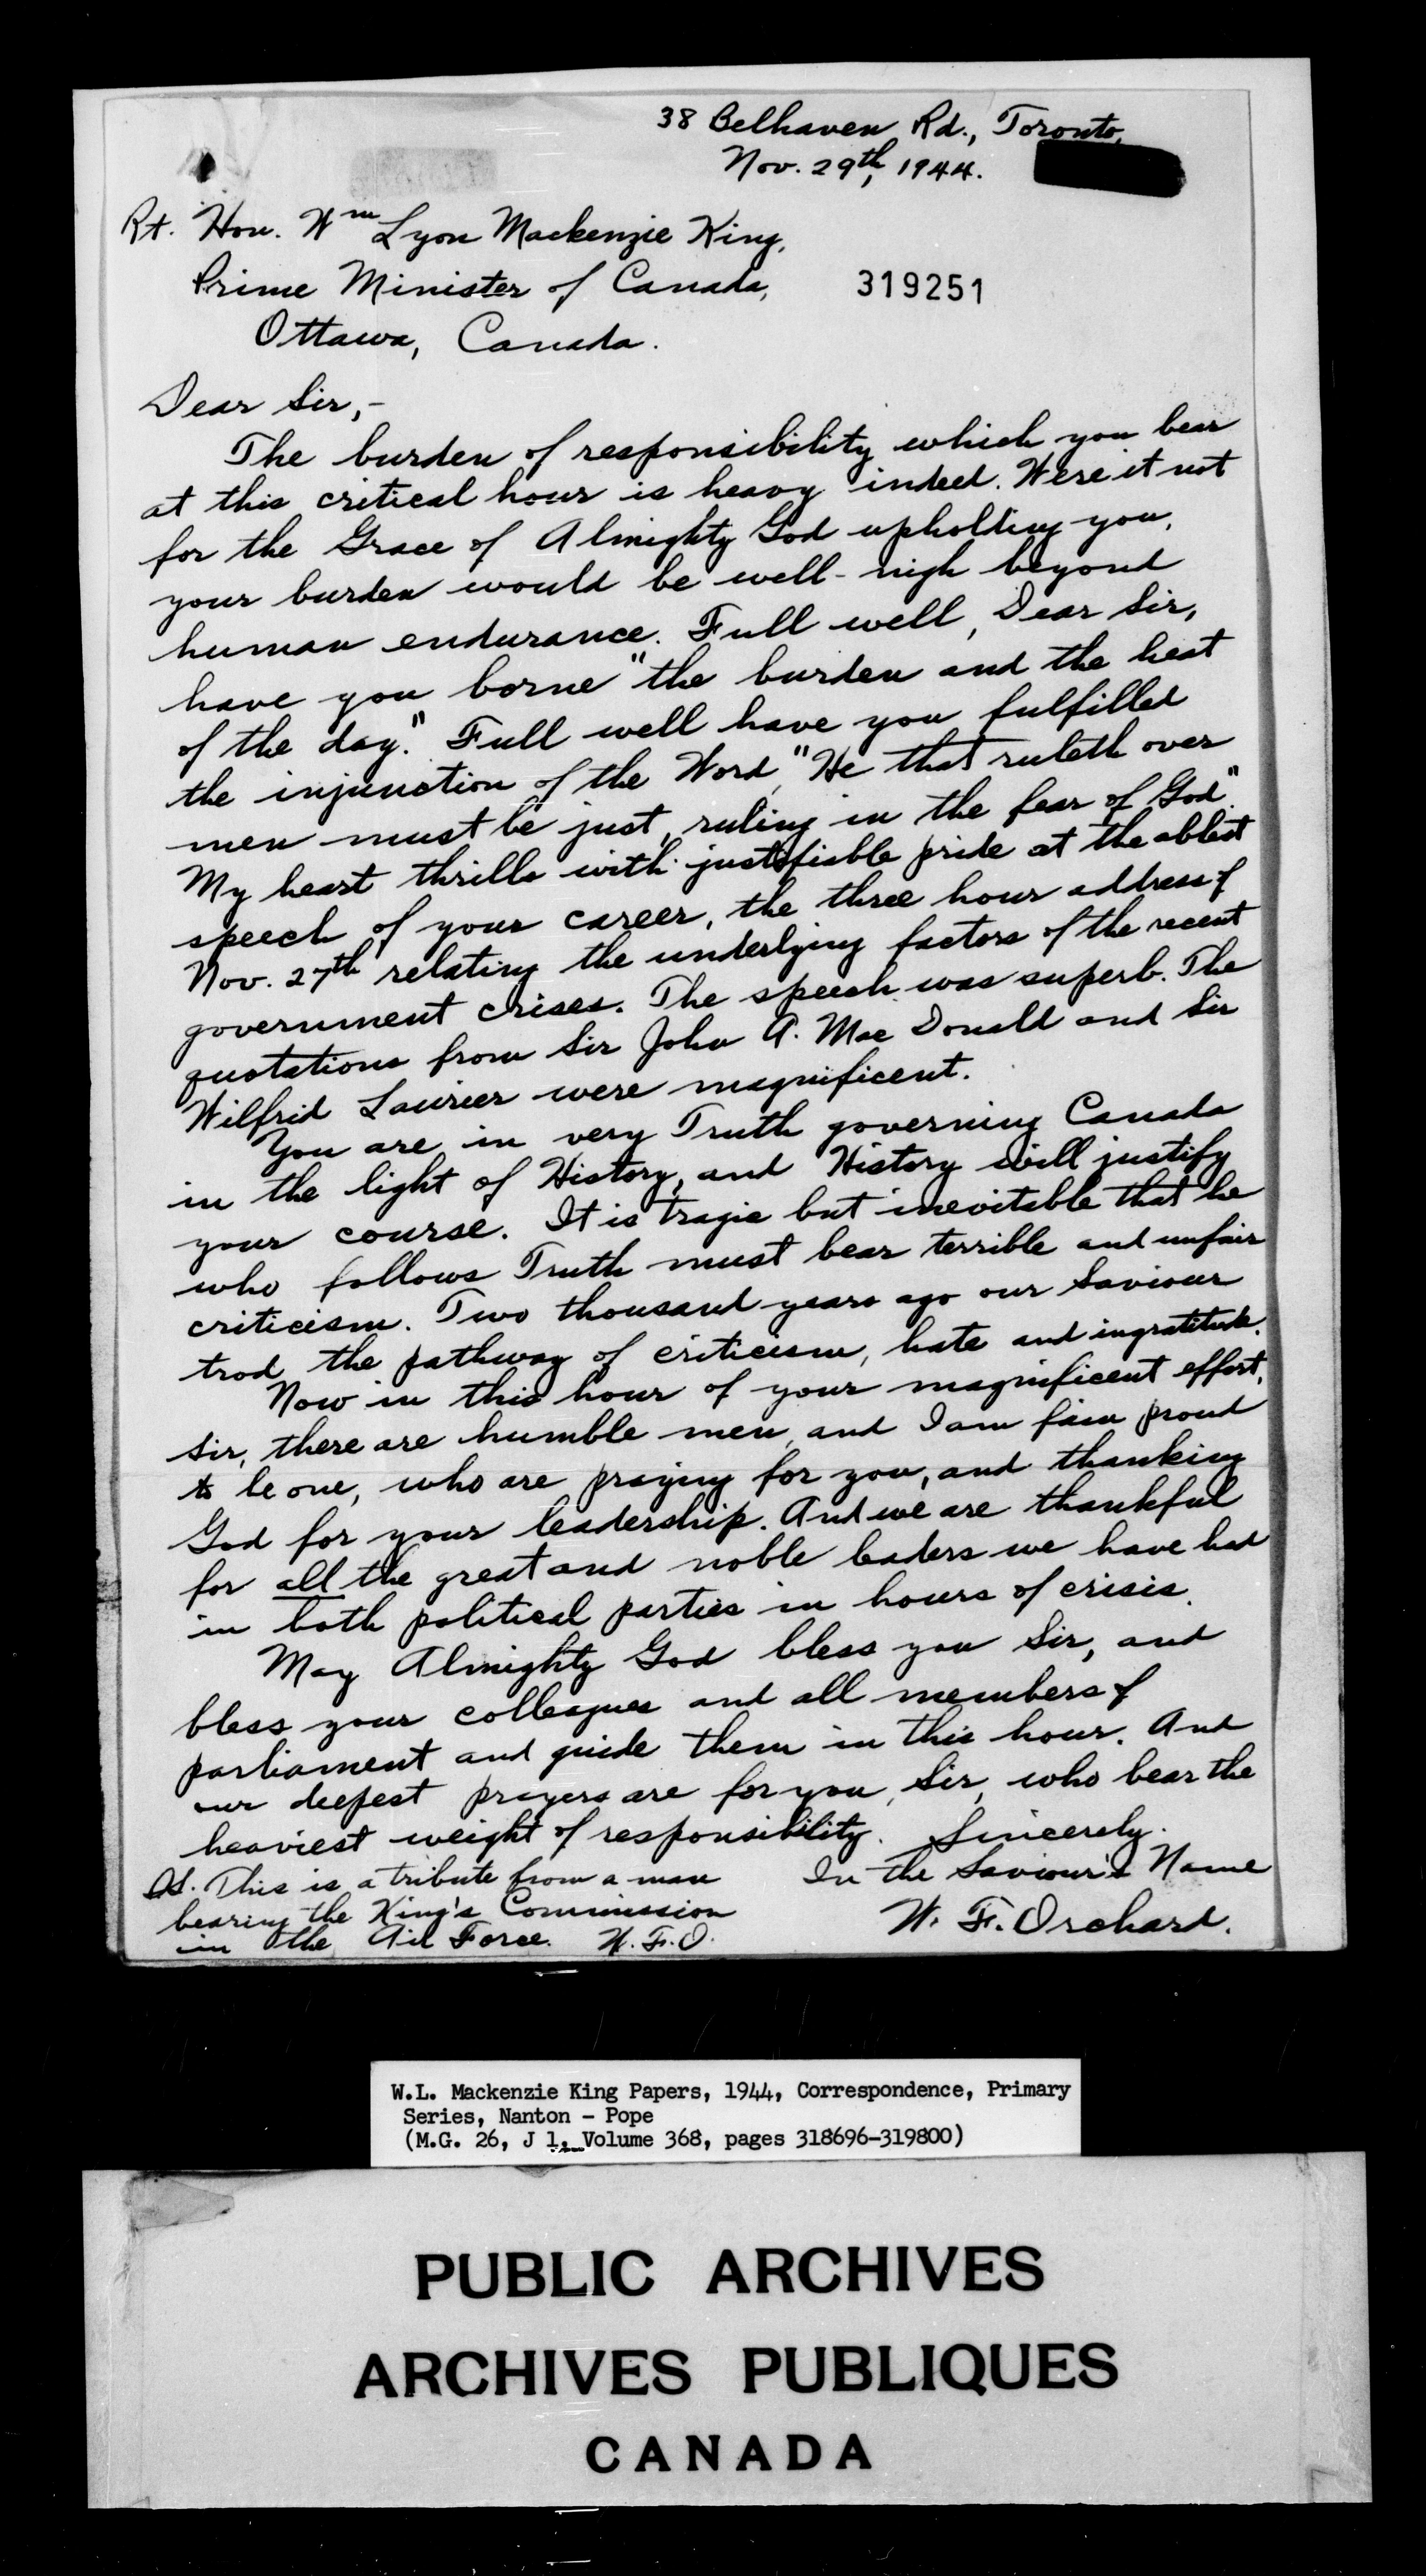 38 Belhaven Rd., Toronto,
Nov. 29th, 1944.
Rt. Hon. Wm Lyon Mackenzie King,
Prime Minister of Canada,
319251
Ottawa, Canada.
Dear Sir,-
The burden of responsibility which you bear
at this critical hour is heavy indeed. Were it not
for the Grace of Almighty God upholding you,
your burden would be well-nigh beyond
human endurance. Full well, Dear Sir,
have you borne "the burden and the heat
of the day." Full well have you fulfilled
the injunction of the Word, "He that ruleth over
men must be just, ruling in the fear of God."
My heart thrills with justifiable pride at the ablest
speech of your career, the three hour address of
Nov. 27th relating the underlying factors of the recent
government crises. The speech was superb. The
quotations from Sir John A. MacDonald and Sir
Wilfrid Laurier were magnificent.
You are in very Truth governing Canada
in the light of History, and History will justify
your course. It is tragic but inevitable that he
who follows Truth must bear terrible and unfair
criticism. Two thousand years ago our Saviour
trod the pathway of criticism, hate and ingratitude.
Now in this hour of your magnificent effort,
sir, there are humble men, and I am fain proud
to be one, who are praying for you, and thanking
God for your leadership. And we are thankful
for all the great and noble leaders we have had
in both political parties in hours of crisis.
May Almighty God bless you Sir, and
bless your colleagues and all members of
parliament and guide them in this hour. And
our deepest prayers are for you, Sir, who bear the
heaviest weight of responsibility. Sincerely.
In the Saviour's Name
W. F. Orchard.
P.S. This is a tribute from a man
bearing the King's Commission
in the Air Force. W.F.O.
W.L. Mackenzie King Papers, 1944, Correspondence, Primary
Series, Nanton - Pope
(M.G. 26, J 1, Volume 368, pages 318696-319800)
PUBLIC ARCHIVES
ARCHIVES PUBLIQUES
CANADA